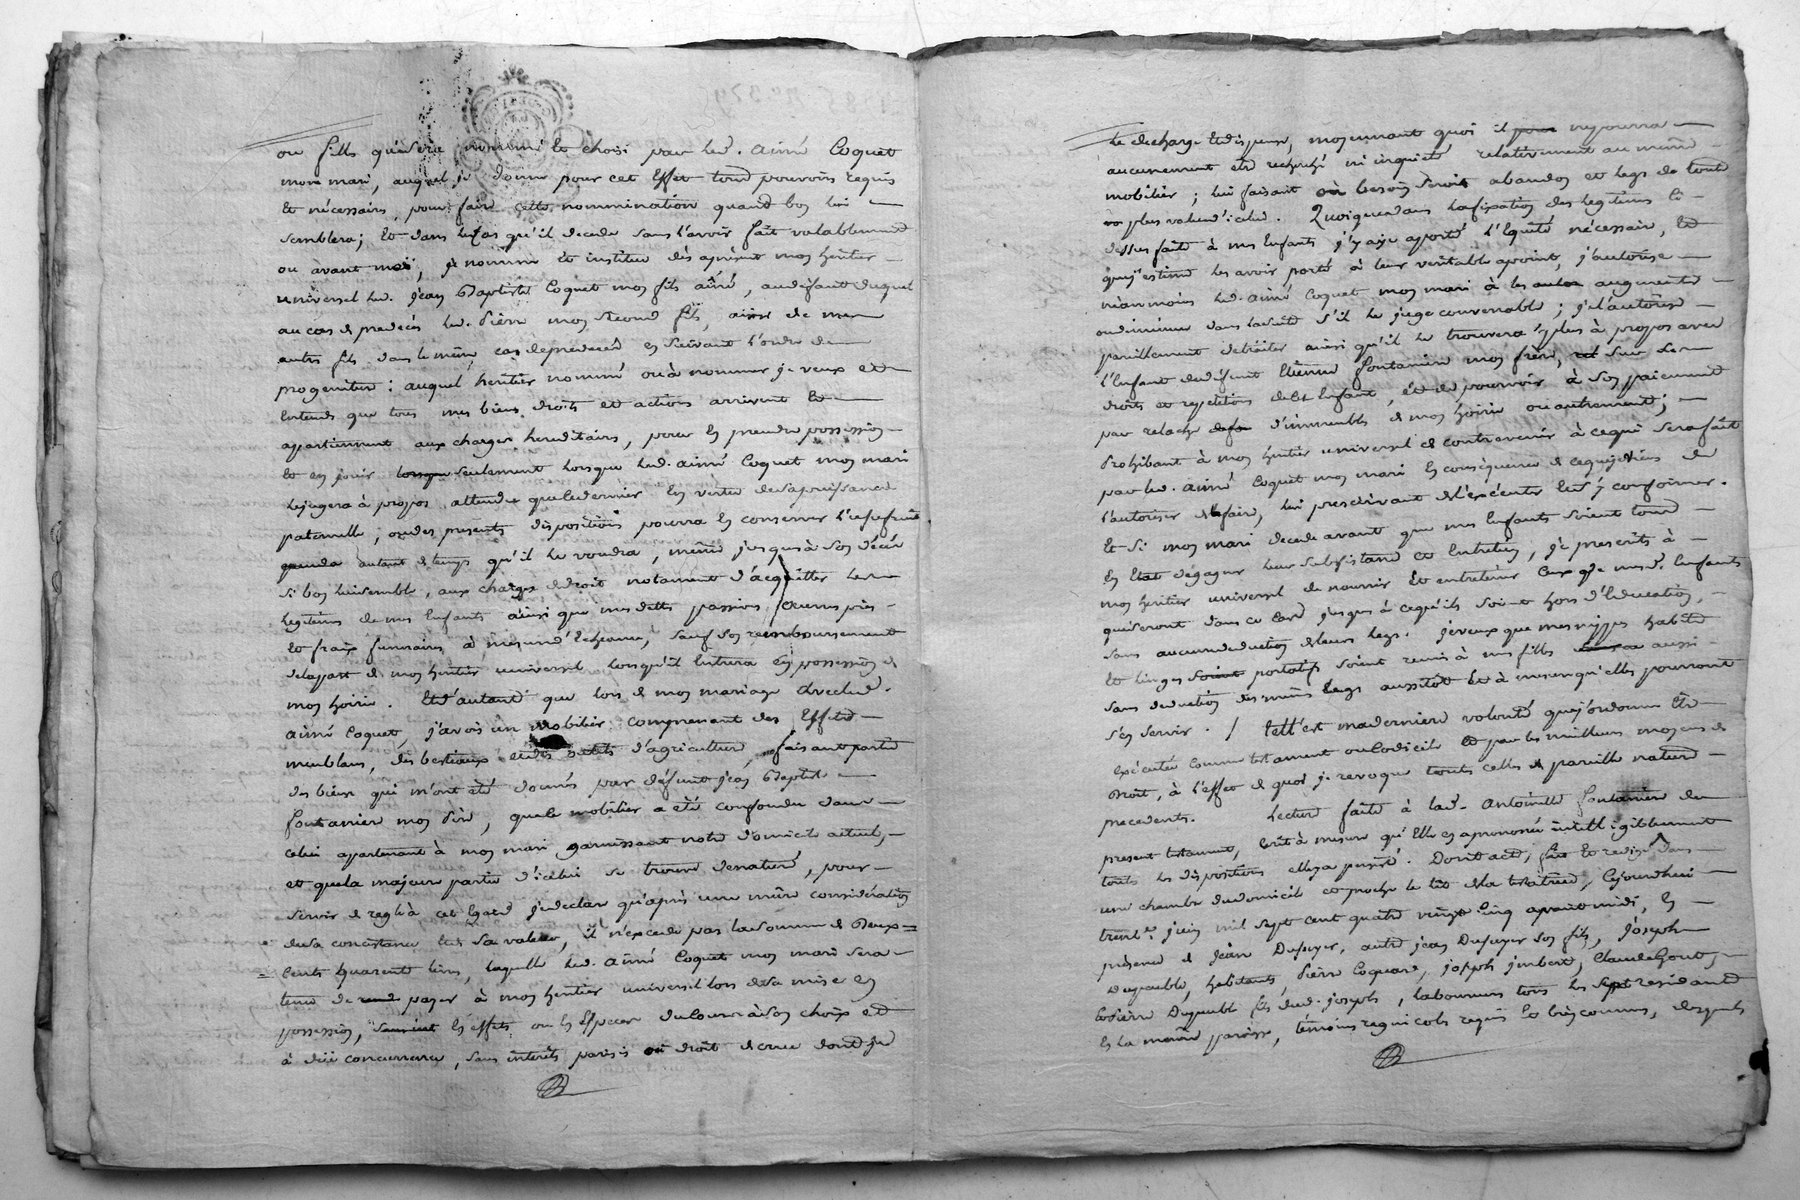 ou fille qui sera nommé et choisi par led. Aimé Coquet
mon mari, auquel je donne pour cet effet tous pouvoirs requis
et nécessaires, pour faire cette nommination quand bon lui
semblera; et dans le cas qu'il decede sans l'avoir fait valablement
ou avant moi, je nomme et institue dès aprésent mon héritier
universel led. jean Baptiste Coquet mon fils aîné, au defaut duquel
au cas de predecès led. Pierre mon second fils, ainsi de mes
autres fils dans le même cas de predecès en suivant l'ordre de
progeniture: auquel heritier nommé ou à nommer je veux et
entends que tous mes biens, droits et actions arrivent et
appartiennent aux charges hereditaires, pour en prendre possession
et en jouir seulement lorsque led. aimé Coquet mon mari
le jugera à propos, attendu que ce dernier en vertu de sa puissance
paternelle, ou des presentes dispositions pourra en conserver l'usufruit
autant de temps qu'il le voudra, même jusques à son décès
si bon lui semble, aux charges de droit notament d'acquitter les
legitimes de mes enfants ainsi que mes dettes passives, œuvres pies
et fraix funeraires à mesure d'echeance, sauf son remboursement
de la part de mon heritier universel lorsqu'il entrera en possession de
mon hoirie. Et d'autant que lors de mon mariage avec led.
aimé Coquet, j'avois un mobilier comprenant des effets
meublans, des bestiaux et des outils d'agriculture, faisant partie
des biens qui m'ont été donnés par défunt jean Baptiste
fontanier mon Père, que le mobilier a été confondu dans
celui appartenant à mon mari garnissant notre domicile actuel,
et que la majeure partie d'icelui se trouve denaturé, pour
servir de regle à cet égard je declare qu'après une mûre considération
de sa consistance et de sa valeur, il n'excede pas la somme de Deux
Cents quarente livres, laquelle led. Aimé Coquet mon mari sera
tenu de payer à mon heritier universel lors de sa mise en
possession, en effets ou en espèces du cours à son choix et
à düe concurrence, sans interêts parisis ou droit de crüe dont je
le decharge et dispense, moyennant quoi il ne pourra
aucunement etre recherché ni inquieté relativement au même
mobilier; lui faisant où besoin seroit abandon et legs de toute
plus value d'icelui. Quoique dans la fixation des legitimes ci
dessus faite à mes enfants j'y aye aporté l'équité nécessaire, et
que j'estime les avoir porté à leur veritable apoint, j'autorise
néanmoins led. aimé Coquet mon mari à les augmenter
ou diminuer dans la suite s'il le juge convenable; je l'autorise
pareillement de traiter ainsi qu'il le trouvera plus à propos avec
l'enfant de defunt Etienne fontanier mon frère, sur les
droits et repetitions de cet enfant, et de pourvoir à son paiement
par relache d'immeubles de mon hoirie ou autrement;
Prohibant à mon heritier universel de contrevenir à ce qui sera fait
par led. aimé Coquet mon mari en conséquence de ce que je viens de
l'autoriser de faire, lui prescrivant de l'exécuter et s'y conformer.
Et si mon mari decede avant que mes enfants soient tous
en etat de gagner leur subsistance et entretien, je prescrits à
mon heritier universel de nourrir et entretenir ceux de mesd. enfants
qui seront dans ce cas jusques à ce qu'ils soient hors d'education,
sans aucune deduction de leurs legs. je veux que mes nippes habits
et linges portatifs soient remis à mes filles aussi
sans deduction des mêmes legs aussitôt et à mesure qu'elles pourront
s'en servir. / telle est ma derniere volonté que j'ordonne être
exécutée comme testament ou codicile et par les meilleurs moyens de
Droit, à l'effet de quoi je revoque touts celles de pareille nature
precedents. Lecture faite à lad. Antoinette fontanier du
present testament, écrit à mesure qu'elle en a prononcé intelligiblement
touts les dispositions elle y a persisté. Dont acte, fait et redigé dans
une chambre du domicile et proche le lit de la testatrice, cejourdhui
trente juin mil sept cent quatre vingt cinq avant midi, en
présence de Jean Dufuyer, autre jean Dufuyer son fils, Joseph
Dupeuble, habitants, Pierre Coquard, joseph jmbert, Claude Gonty,
et Pierre Dupeuble fils dud. joseph, laboureurs tous les sept residant
en la même paroisse, témoins regnicoles requis et bien connus, desquels